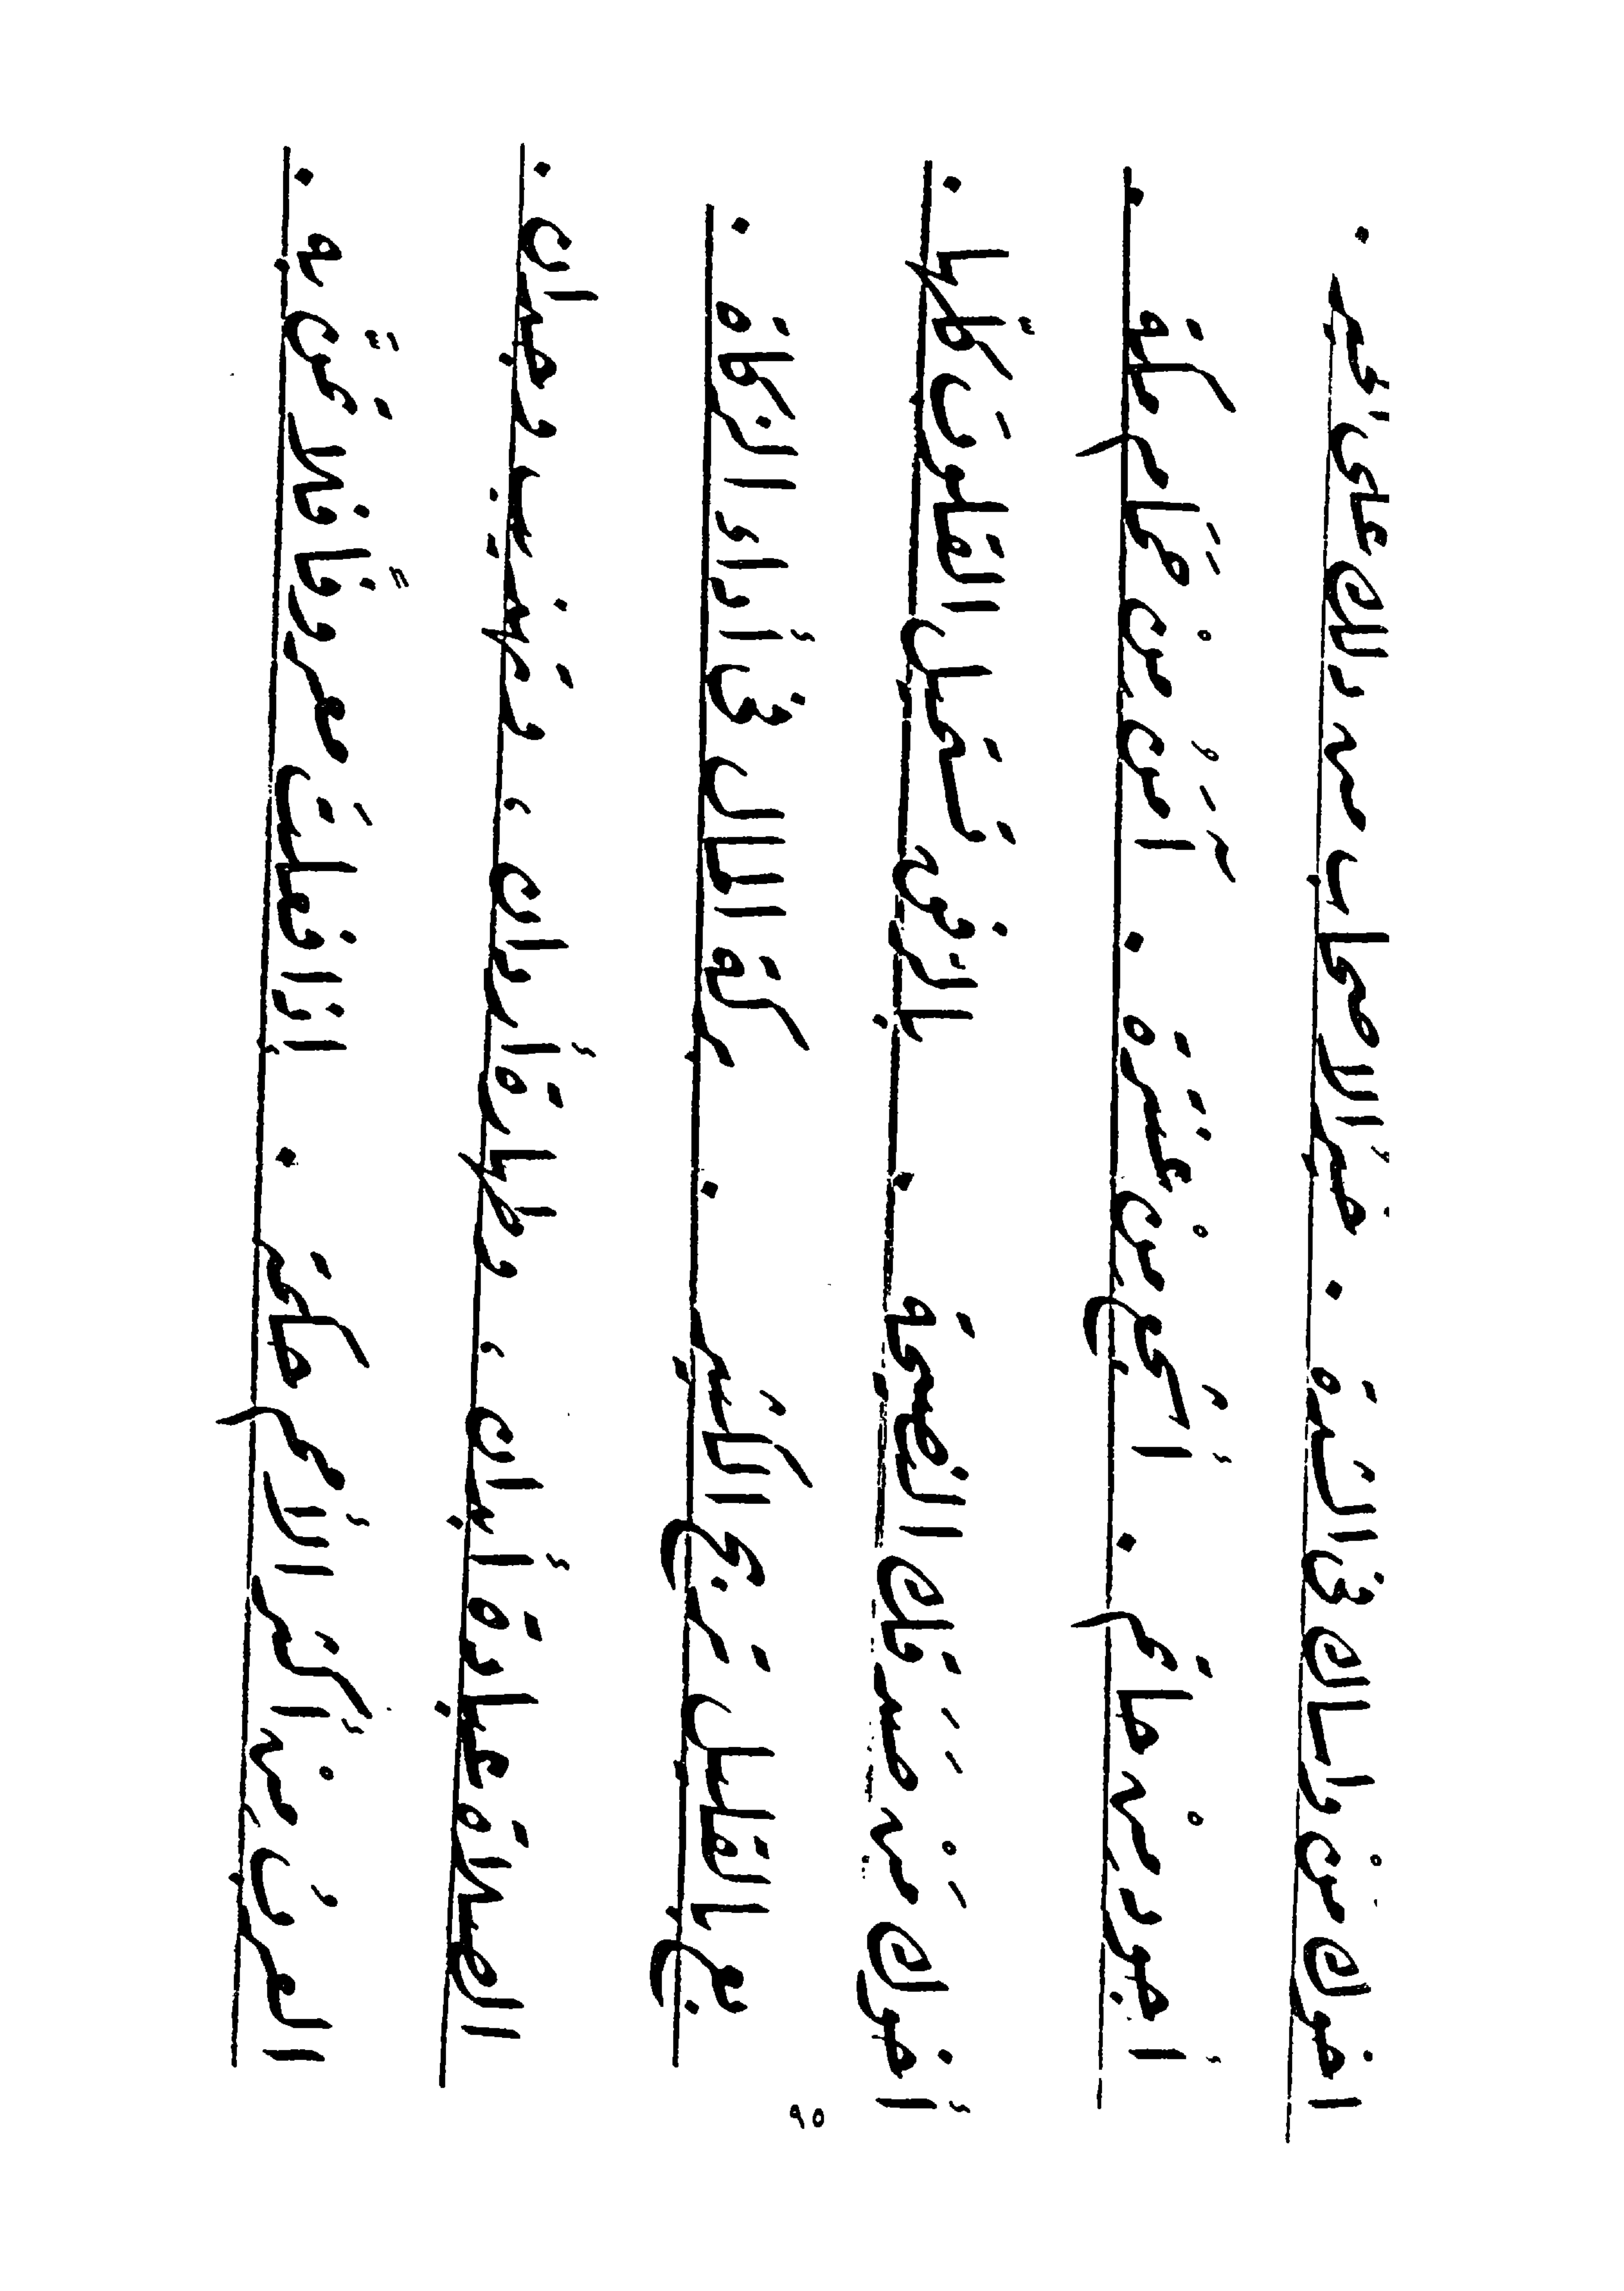 اخوك من واساك في الشدة . خير الاصحاب من دلك على خير .
أجود من حاتم . أشجع من عنترة . آمن من حمام مكة .
أخوك من صدقك النصيحة . بالرفق تستميل القلوب كلها .
بع بالقليل تربح الكثير . بركة المال في أداء الزكاة .
الصلاة عبادة أبدان ، وطهارة أردان ، وتهذيب وجدان .
العرب من أكثر الأمم حكمة . إذا فعلت معروفاً فلا تمنّ به .
٩٥